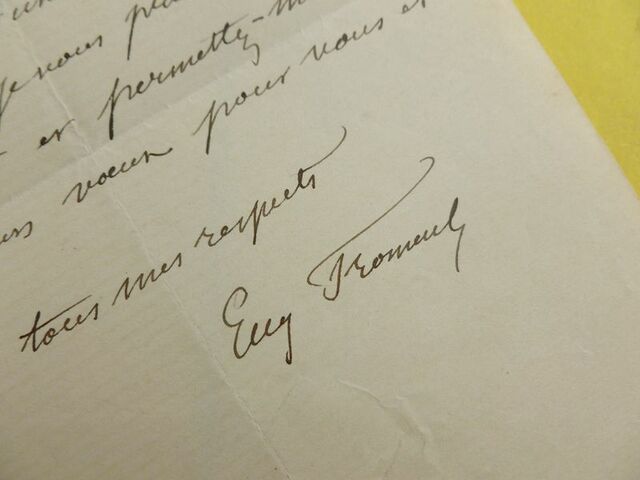 Je vous
et permettez-m
vœux pour vous et
tous mes respects
Eug Froment